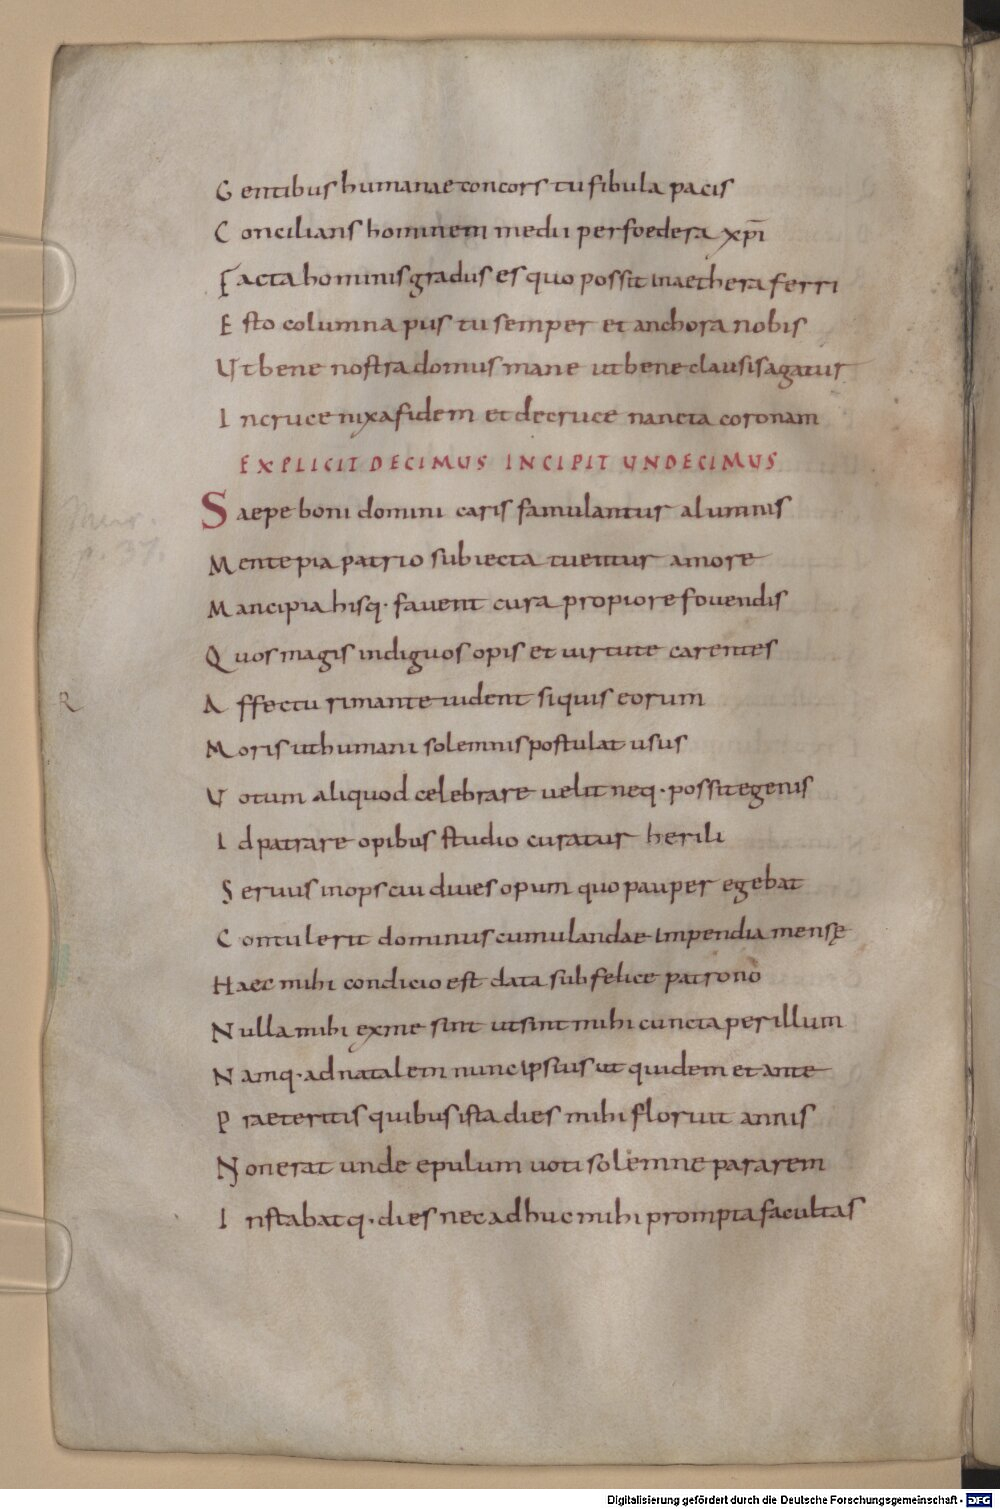 Gentibus humanae concors tu fibula pacis
Concilians hominem medii per foedera xp̄i
Facta hominis gradus es quo possit in aethera ferri
Esto columna pus tu semper et anchora nobis
Ut bene nostra domus mane ut bene clausis agatur
In cruce nixa fidem et de cruce nancta coronam
EXPLICIT DECIMUS INCIPIT UNDECIMUS
Saepe boni domini caris famulantur alumnis
Mente pia patrio subiecta tuentur amore
Mancipia hisq· favent cura propiore fovendis
Quos magis indiguos opis et virtute carentes
R
Affectu rimante vident siquis eorum
Moris ut humani solemnis postulat usus
Votum aliquod celebrare velit neq· possit egenis
Id patrare opibus studio curatur herili
Servus inops cui dives opum quo pauper egebat
Contulerit dominus cumulandae impendia mensę
Haec mihi condicio est data sub felice patrono
Nulla mihi ex me sint ut sint mihi cuncta per illum
Namq· ad natalem nunc ipsius ut quidem et ante
Praeteritis quibus ista dies mihi floruit annis
Non erat unde epulum voti solemne pararem
Instabatq· dies nec adhuc mihi prompta facultas
Digitalisierung gefördert durch die Deutsche Forschungsgemeinschaft - DFG